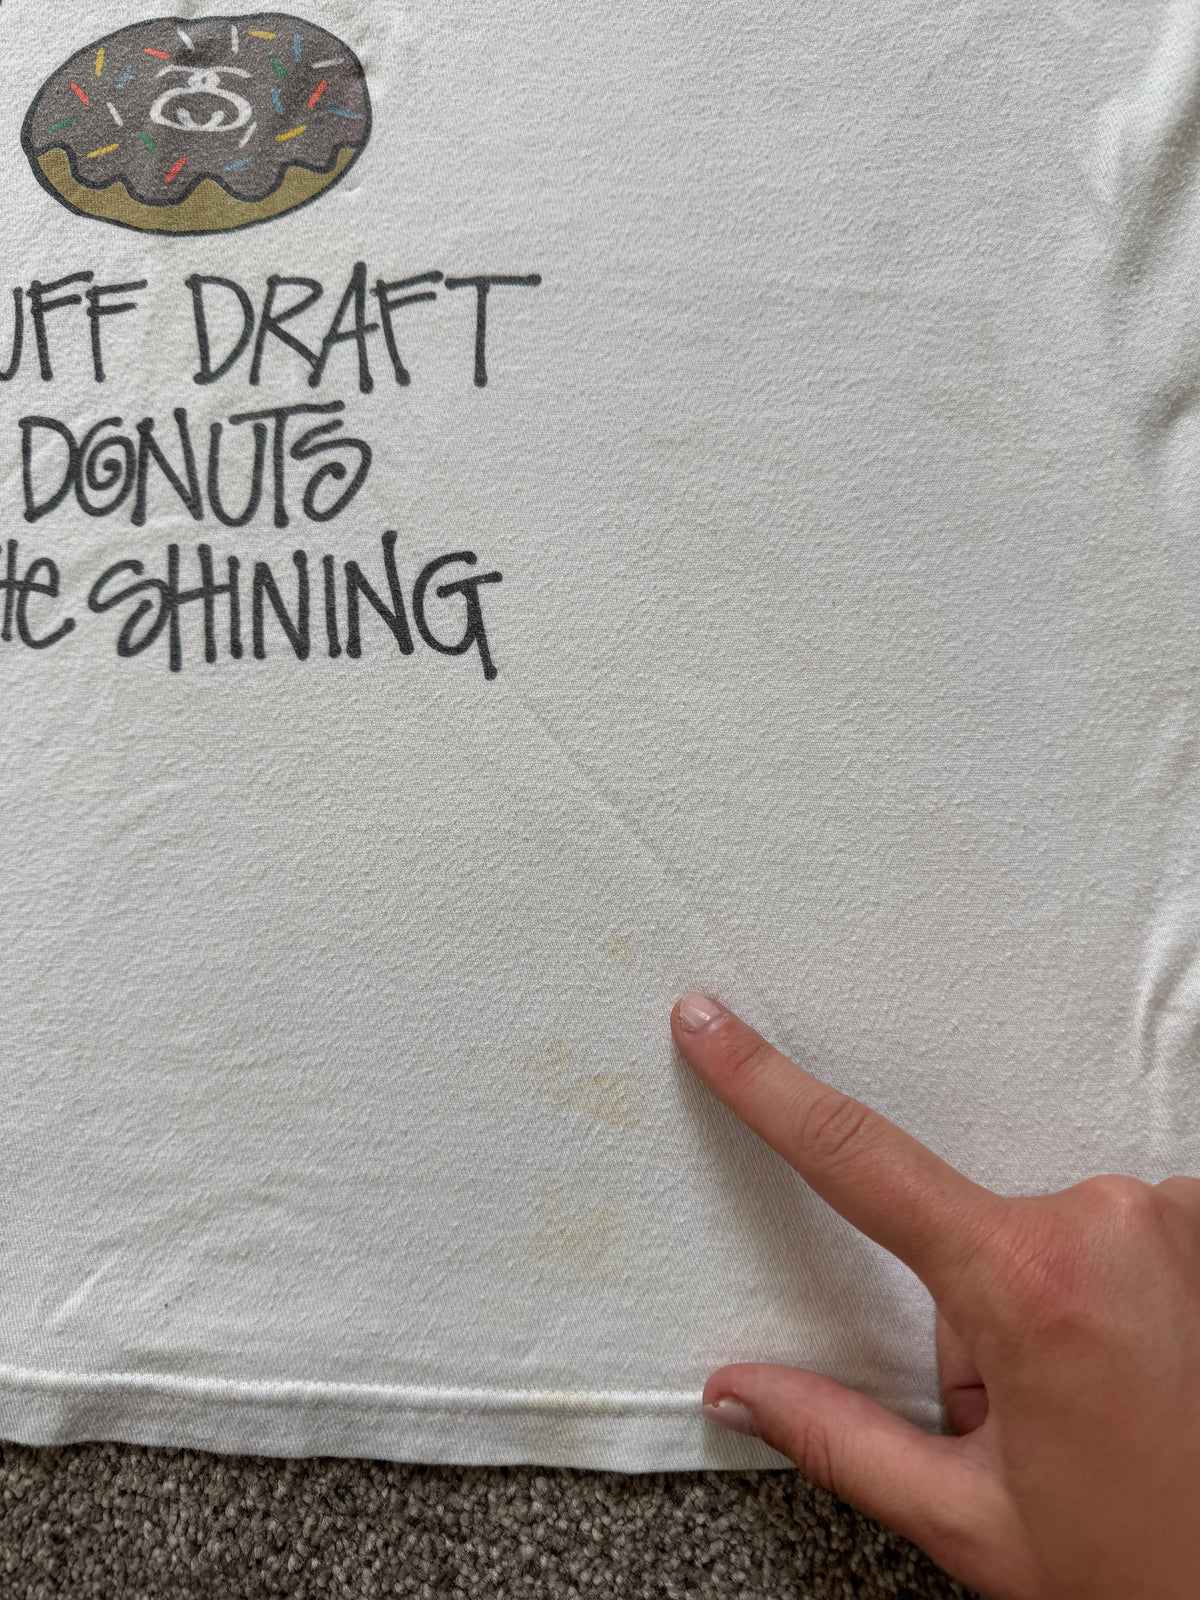 UFF DRAFT
DONUTS
He SHINING